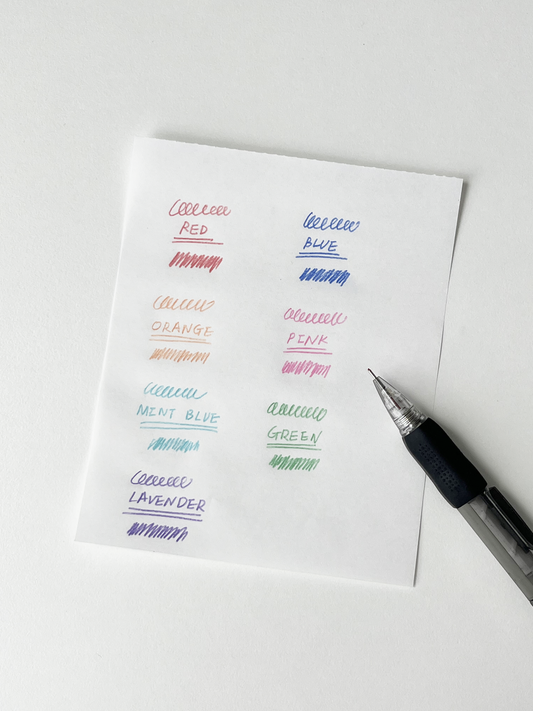 RED
BLUE
ORANGE
PINK
MINT BLUE
GREEN
LAVENDER